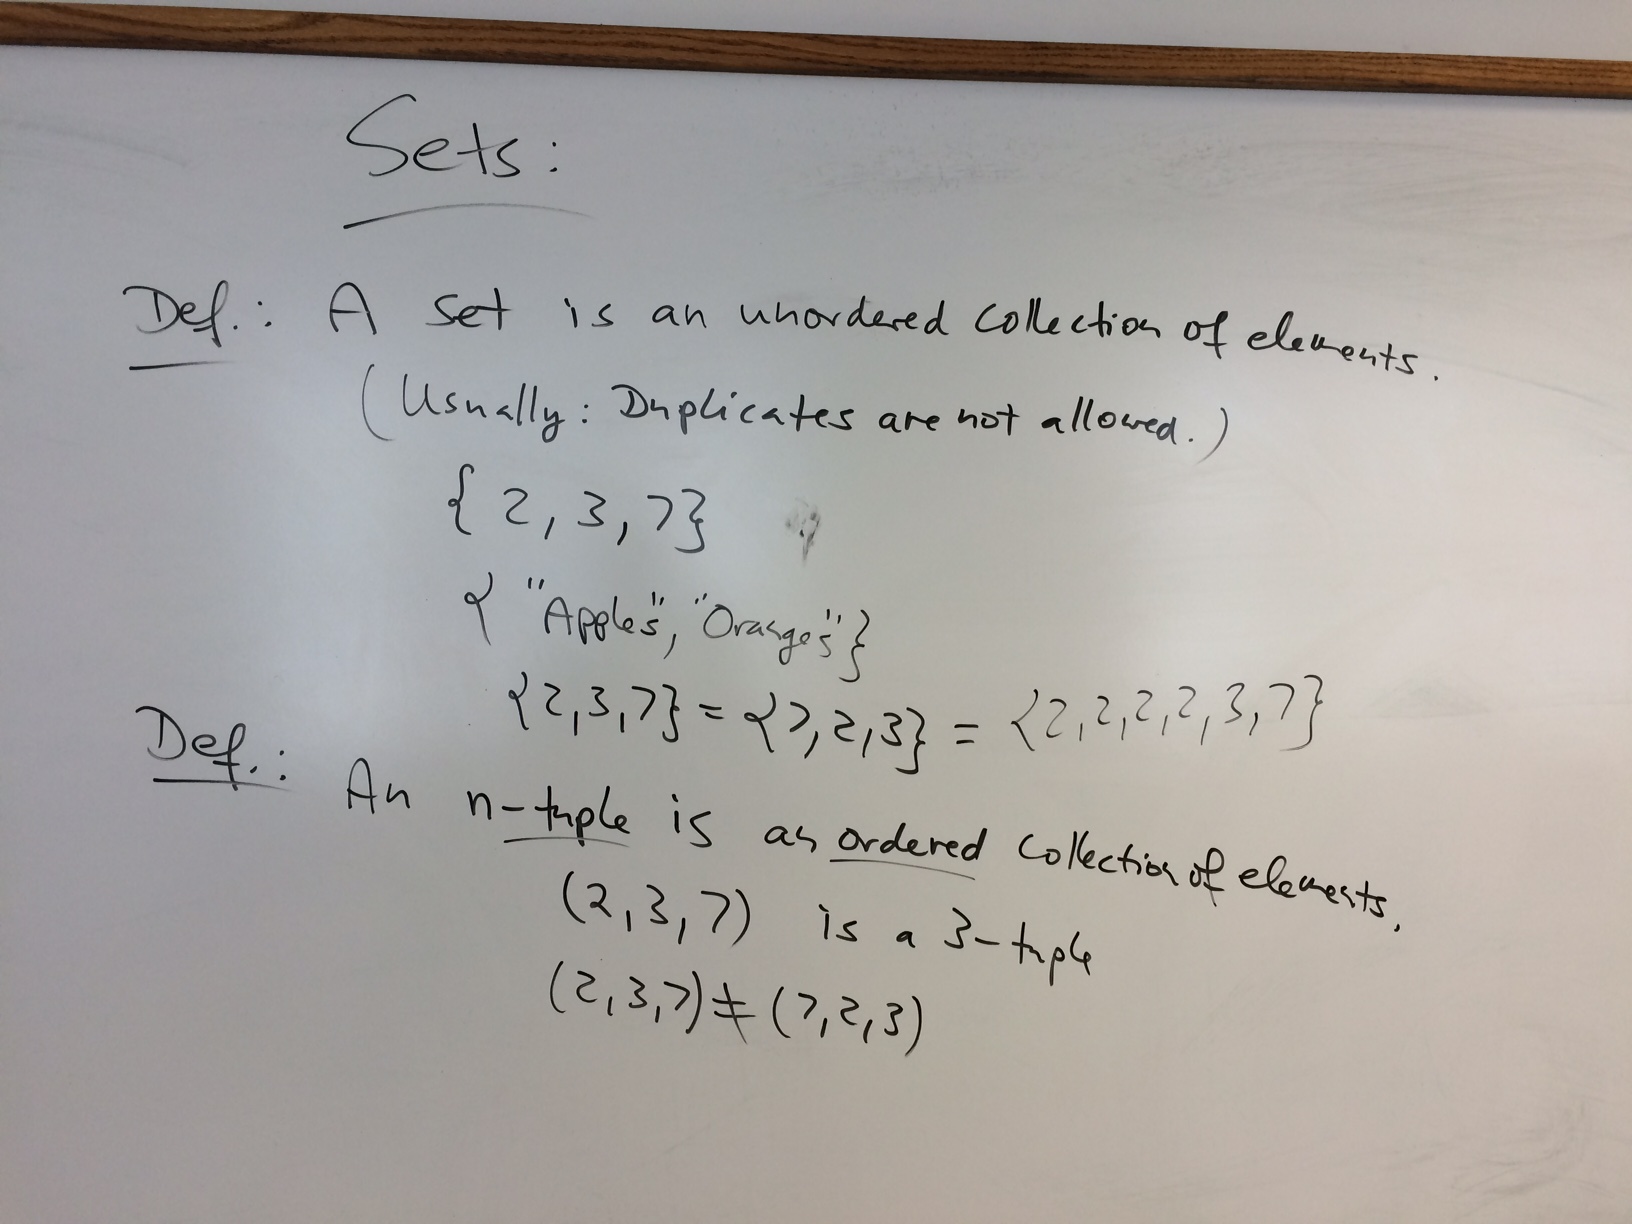 Sets:
Def.: A set is an unordered collection of elements.
(Usually: Duplicates are not allowed.)
{2, 3, 7}
{"Apples", "Oranges"}
{2,3,7} = {7,2,3} = {2,2,2,2,3,7}
Def.: An n-tuple is an ordered collection of elements.
(2,3,7) is a 3-tuple
(2,3,7) ≠ (7,2,3)